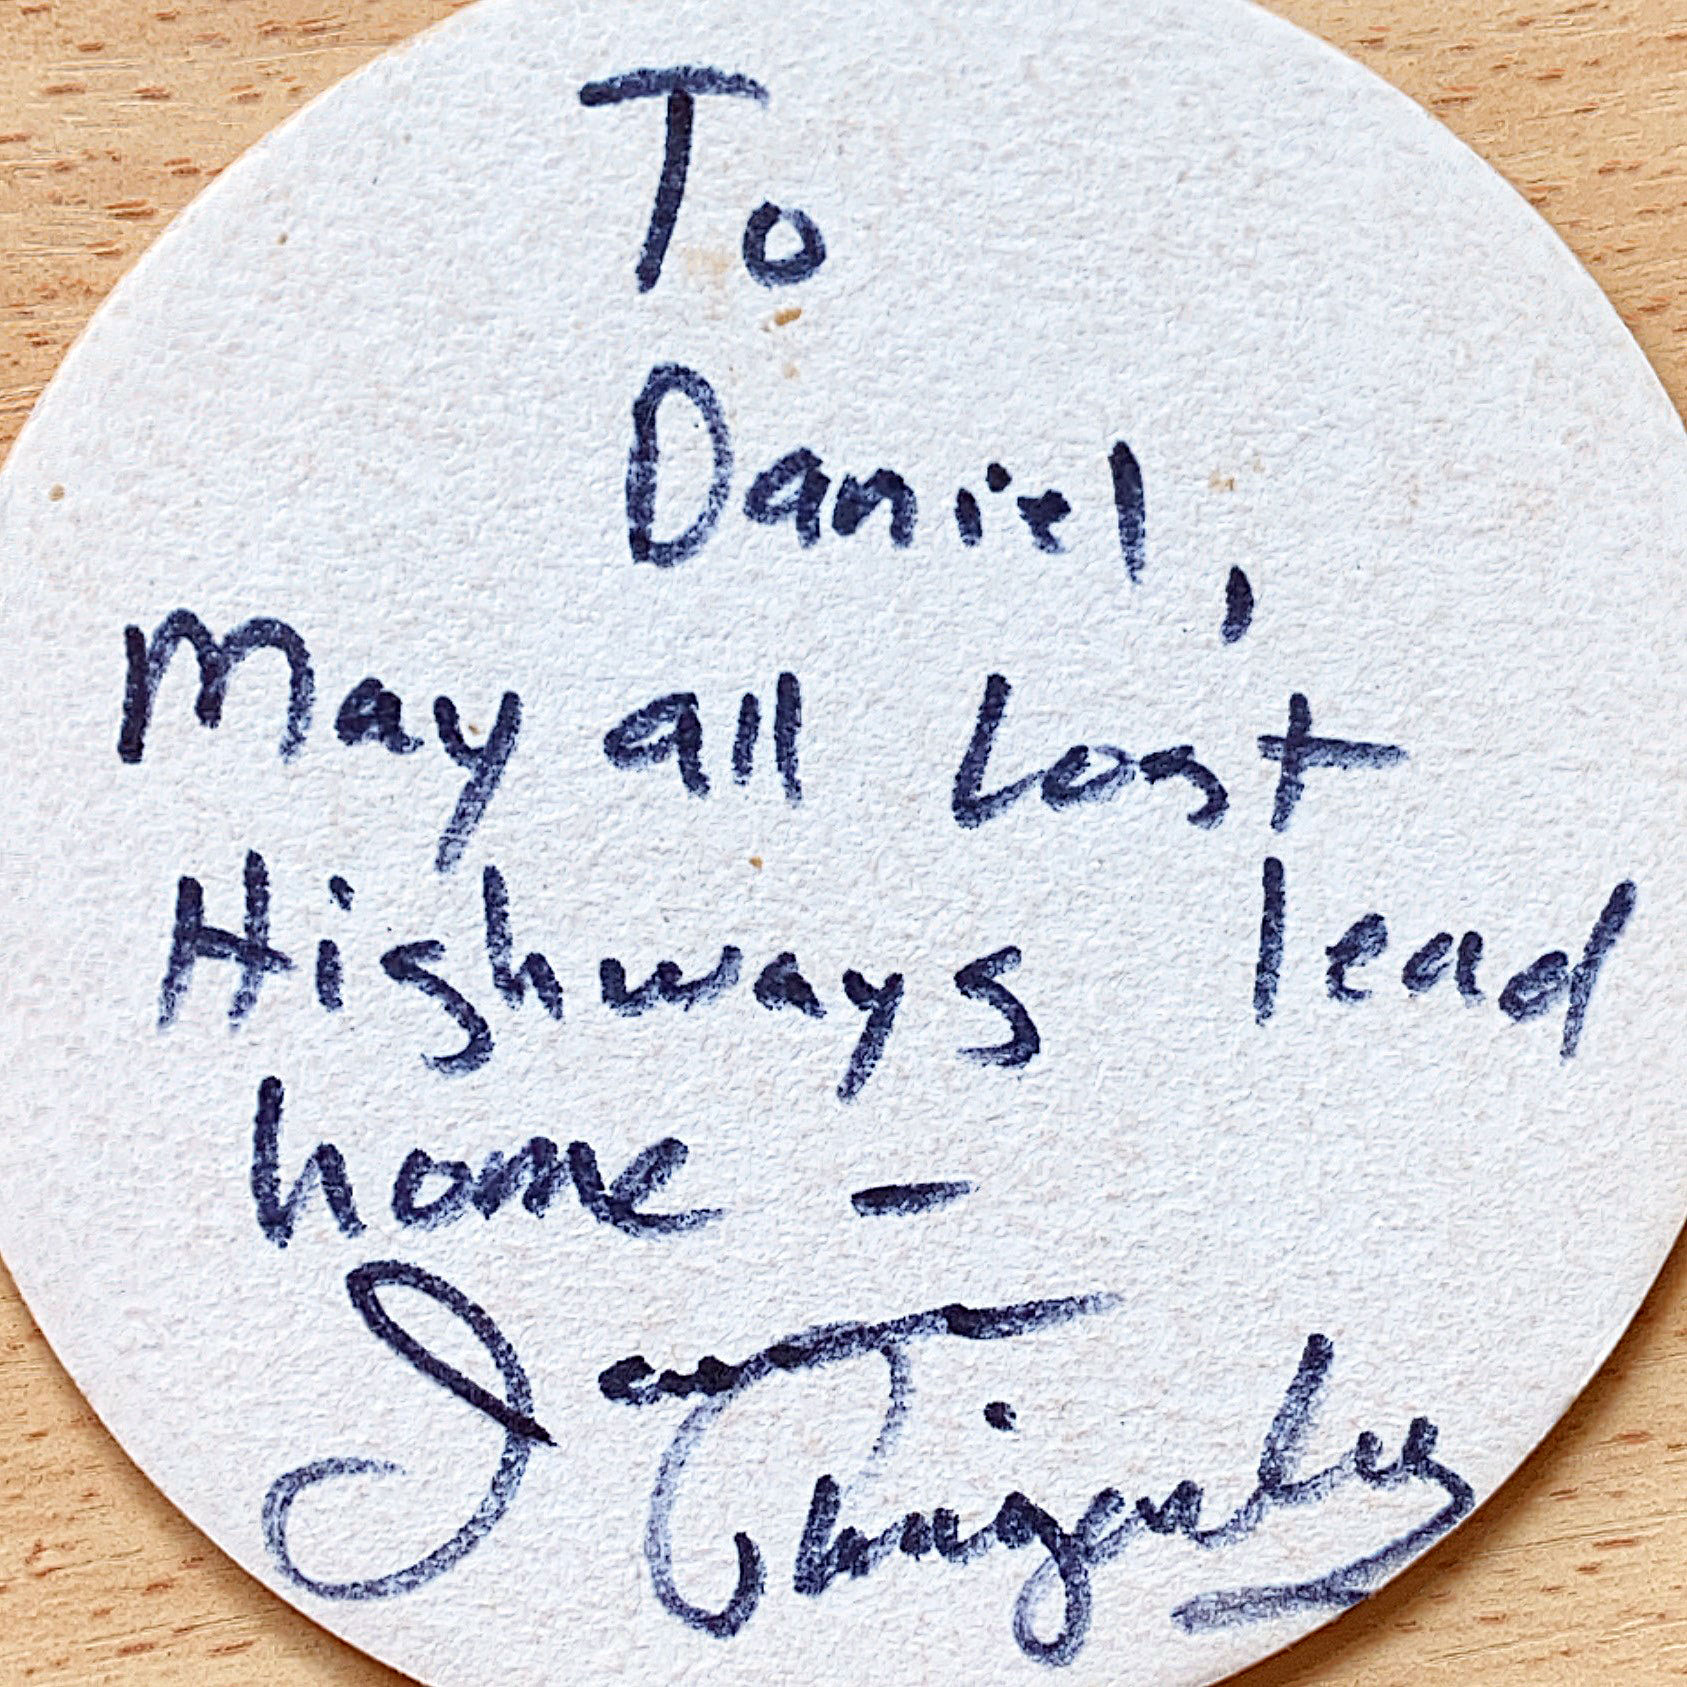 To
Daniel,
May all Lost
Highways lead
home –